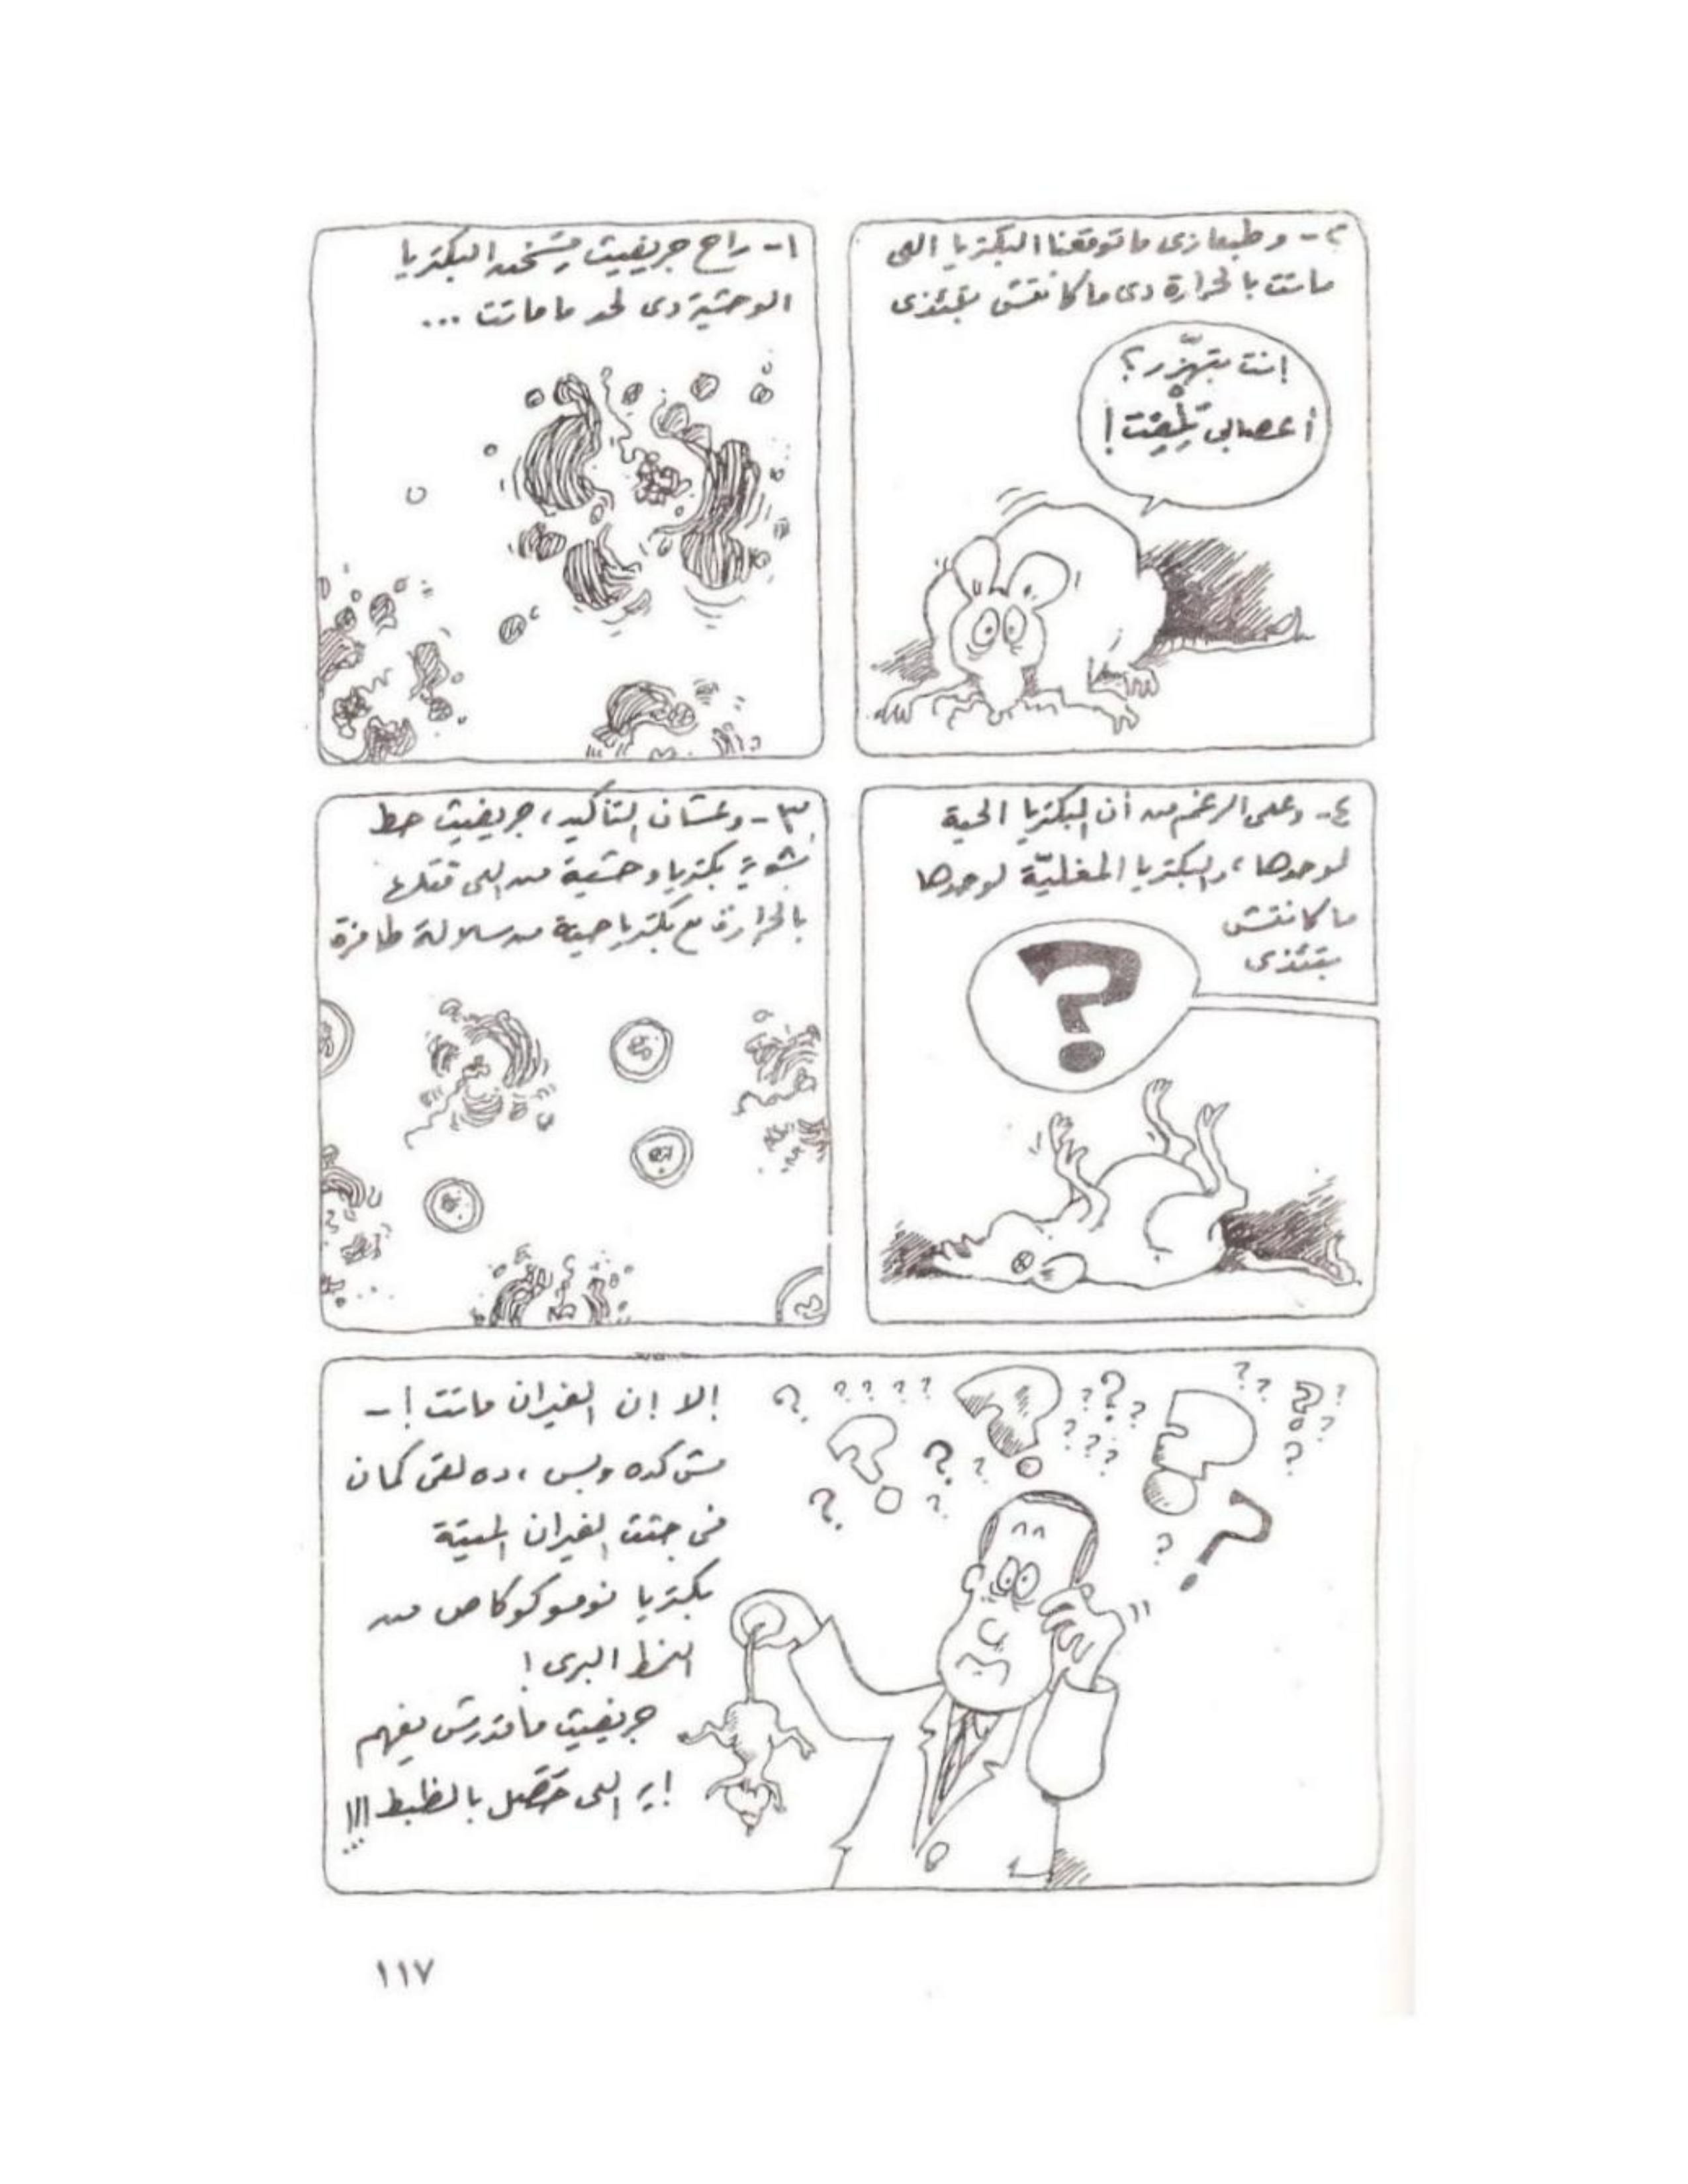 ١- راح جريفيث يسخن البكتريا
الوحشية دى لحد ما ماتت ...
٢- وطبعا زى ما توقعنا البكتريا اللى
ماتت بالحرارة دى ما كانتش بتئذى
إنت بتهزّر؟
أعصابى تِلْفِت!
٣- وعشان التأكيد، جريفيث حط
شوية بكتريا وحشية من اللى قتلها
بالحرارة مع بكتريا حية من سلالة طافرة
٤- وعلى الرغم من أن البكتريا الحية
لوحدها، والبكتريا المغليّة لوحدها
ما كانتش
بتئذى
?
إلا إن الفيران ماتت! -
مش كده وبس، ده لقى كمان
فى جثث الفيران الميتة
بكتريا نوموكوكاص من
النمط البرى!
جريفيث ماقدرش يفهم
إيه اللى حَصَل بالظبط !!!
١١٧